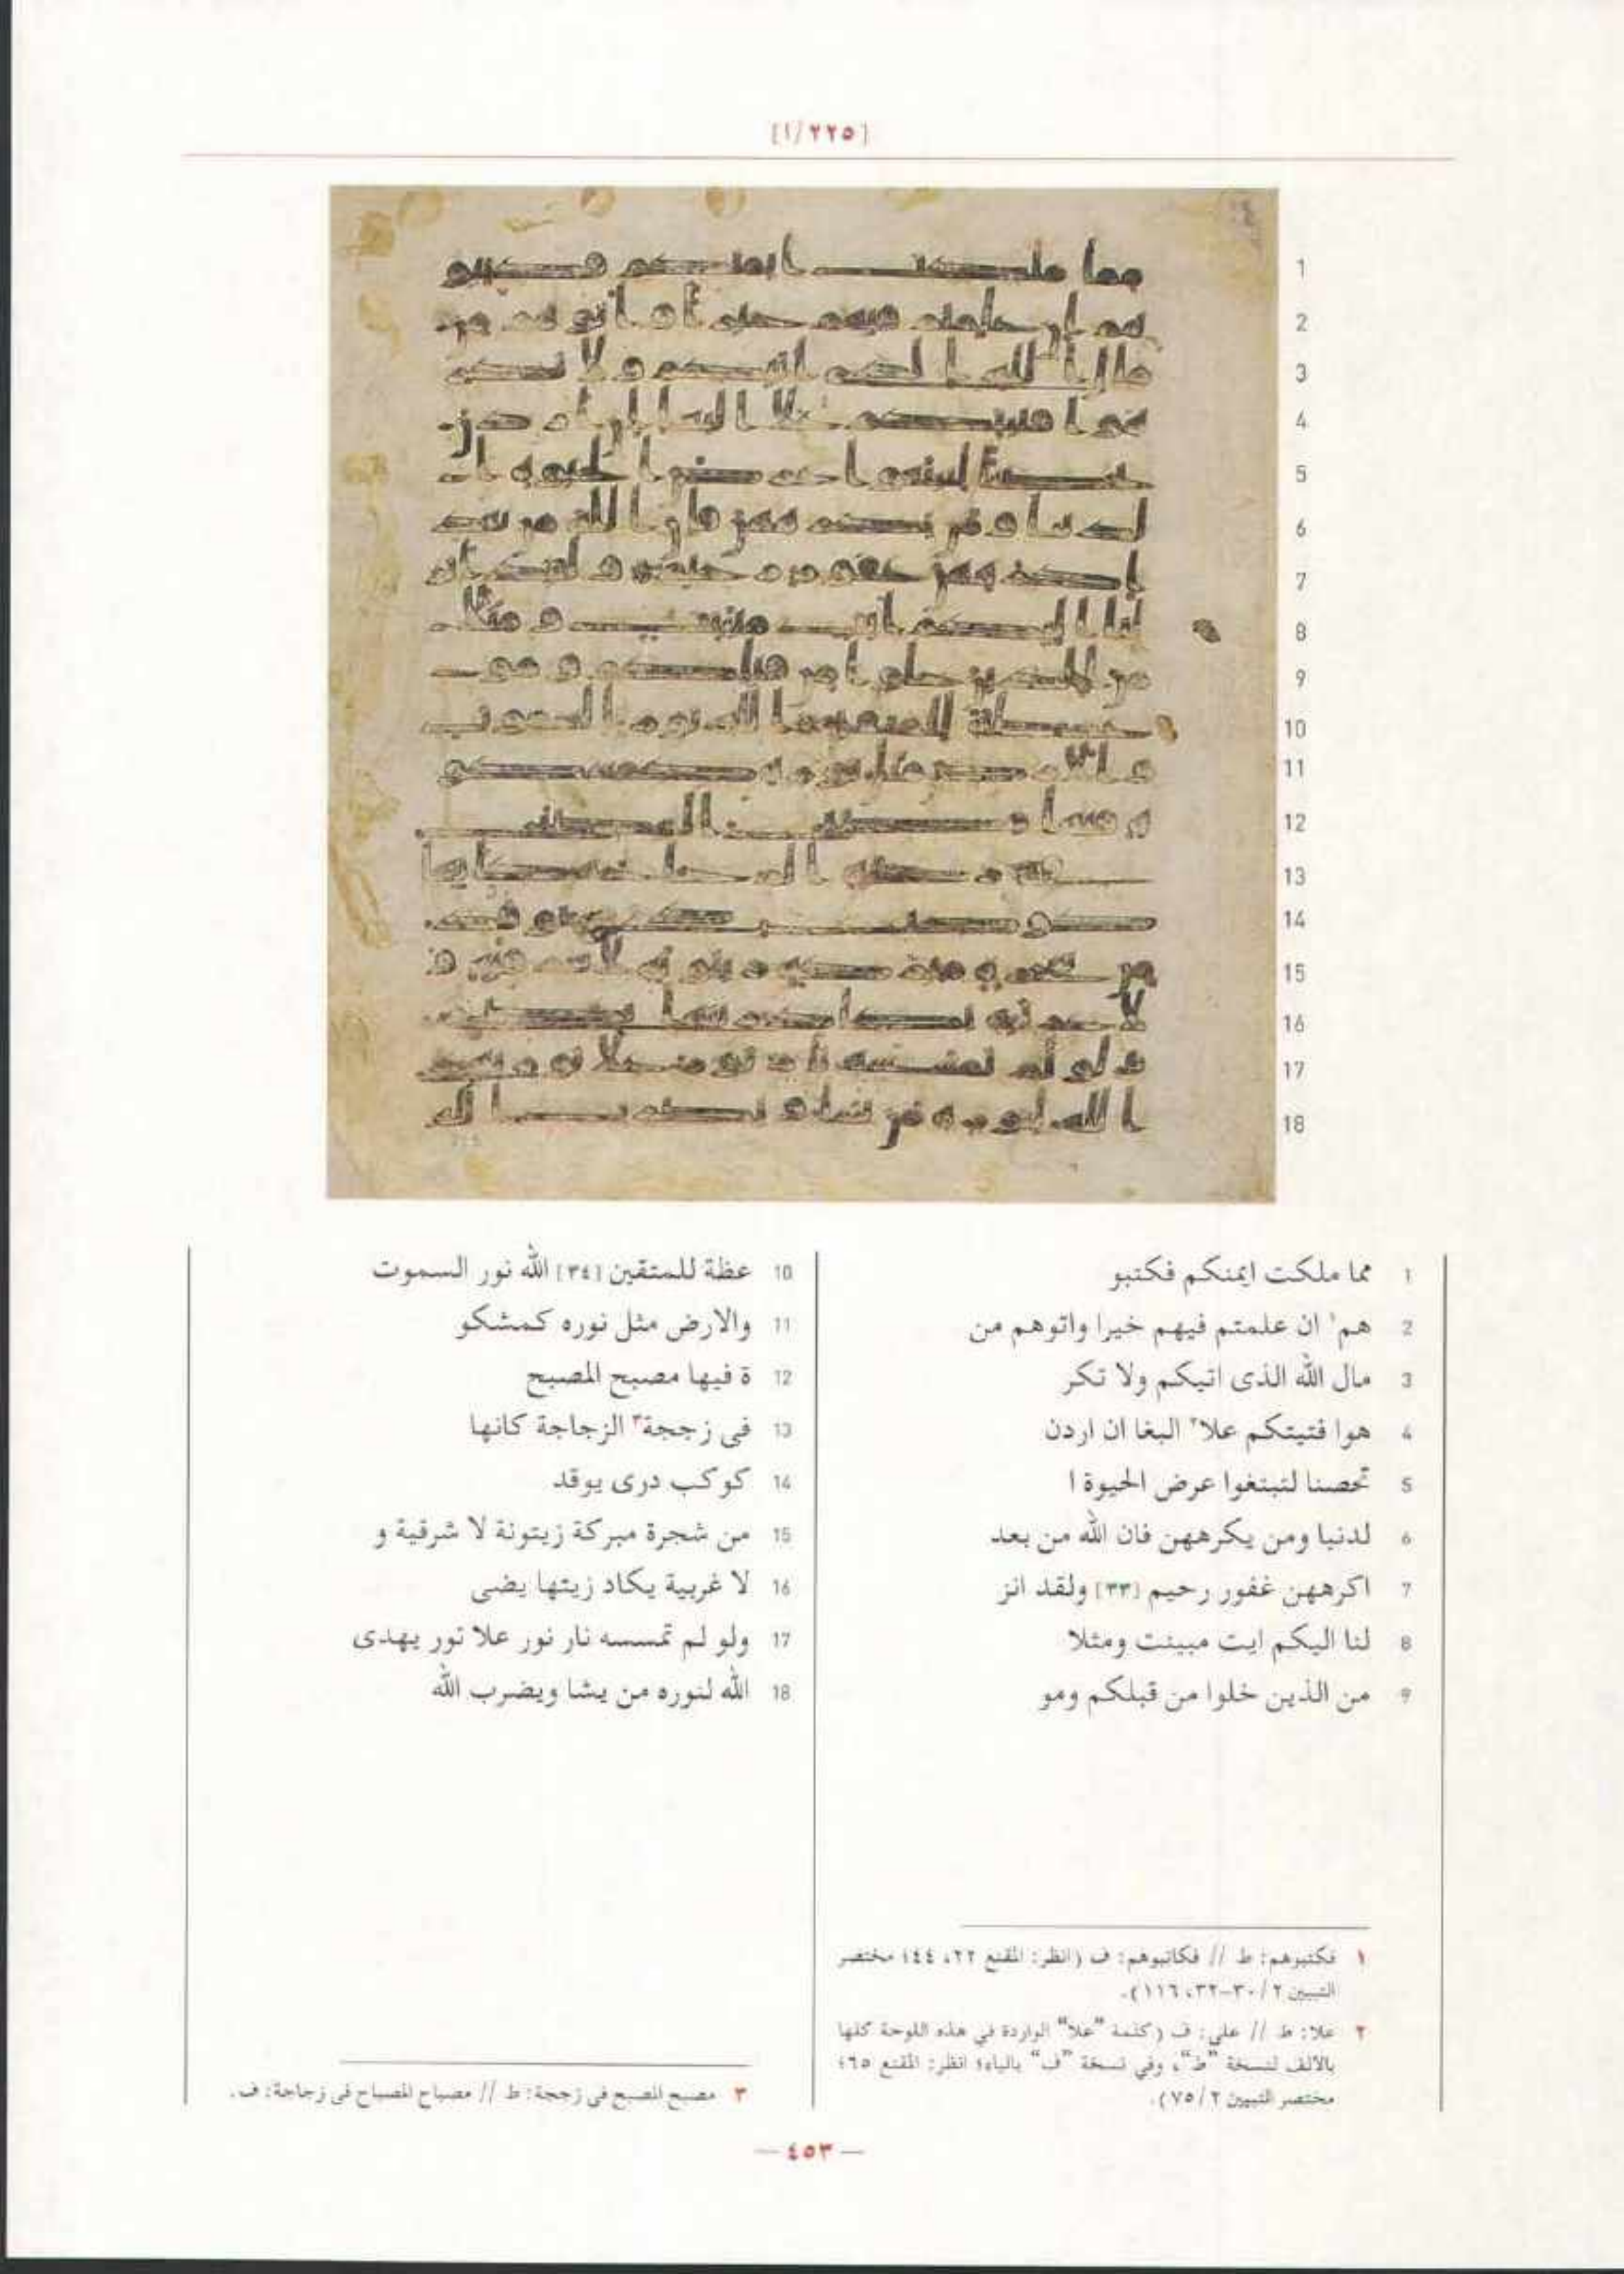 [٢٢٥/١]
1 مما ملكت ايمنكم فكتبو
2 هم١ ان علمتم فيهم خيرا واتوهم من
3 مال الله الذى اتيكم ولا تكر
4 هوا فتيتكم علا٢ البغا ان اردن
5 تحصنا لتبتغوا عرض الحيوة ا
6 لدنيا ومن يكرههن فان الله من بعد
7 اكرههن غفور رحيم [٣٣] ولقد انز
8 لنا اليكم ايت مبينت ومثلا
9 من الذين خلوا من قبلكم ومو
10 عظة للمتقين [٣٤] الله نور السموت
11 والارض مثل نوره كمشكو
12 ة فيها مصبح المصبح
13 فى زججة٣ الزجاجة كانها
14 كوكب درى يوقد
15 من شجرة مبركة زيتونة لا شرقية و
16 لا غربية يكاد زيتها يضى
17 ولو لم تمسسه نار نور علا نور يهدى
18 الله لنوره من يشا ويضرب الله
١ فكتبوهم: ط // فكاتبوهم: ف (انظر: المقنع ٢٢، ٤٤؛ مختصر
التبيين ٢/ ٣٠-٣٢، ١١٦).
٢ علا: ط // على: ف (كلمة "علا" الواردة في هذه اللوحة كلها
بالألف لنسخة "ط"، وفي نسخة "ف" بالياء؛ انظر: المقنع ٦٥؛
مختصر التبيين ٢/ ٧٥).
٣ مصبح المصبح فى زججة: ط // مصباح المصباح فى زجاجة: ف.
— ٤٥٣ —